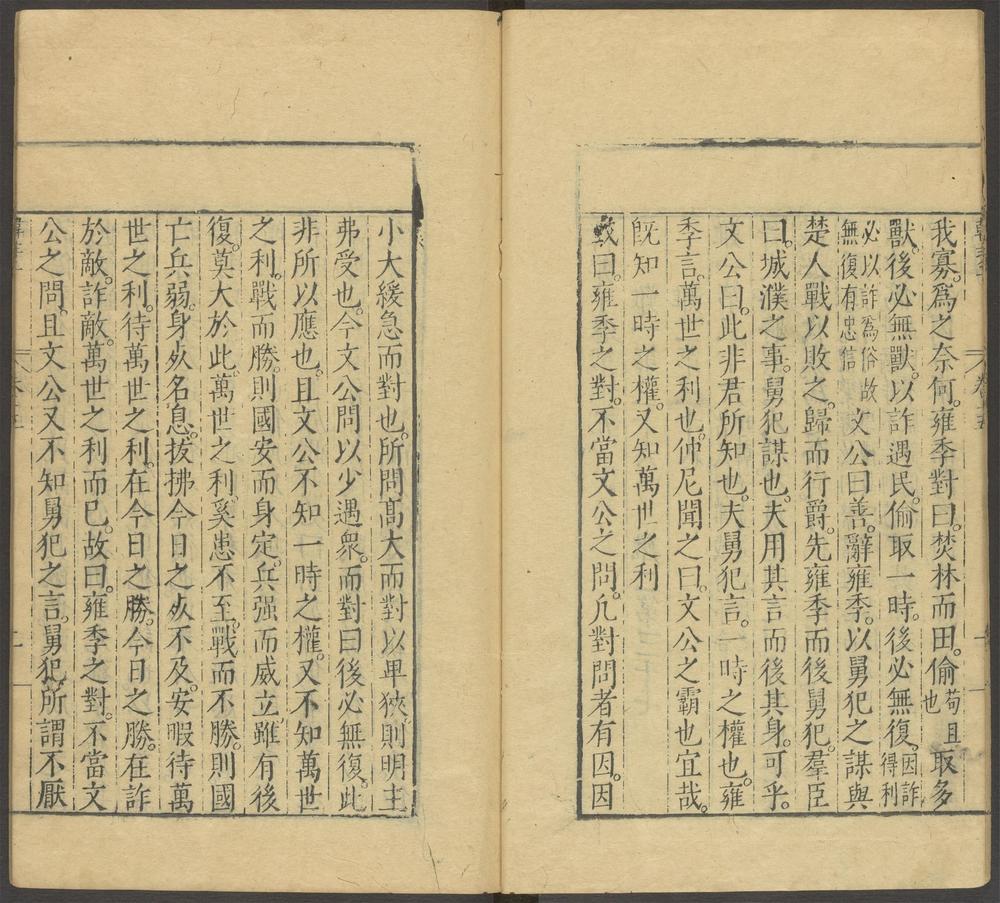 我寡。爲之奈何。雍季對曰。焚林而田。偷苟且也取多
獸。後必無獸。以詐遇民。偷取一時。後必無復。因詐得利
必以詐爲俗故無復有忠信文公曰。善。辭雍季。以舅犯之謀與
楚人戰以敗之。歸而行爵。先雍季而後舅犯。羣臣
曰。城濮之事。舅犯謀也。夫用其言而後其身。可乎。
文公曰。此非君所知也。夫舅犯言。一時之權也。雍
季言。萬世之利也。仲尼聞之曰。文公之霸也宜哉。
旣知一時之權。又知萬世之利
或曰。雍季之對。不當文公之問。凡對問者有因。因
小大緩急而對也。所問高大而對以卑狹。則明主
弗受也。今文公問以少遇衆。而對曰後必無復。此
非所以應也。且文公不知一時之權。又不知萬世
之利。戰而勝。則國安而身定。兵强而威立。雖有後
復。莫大於此。萬世之利奚患不至。戰而不勝。則國
亡兵弱。身死名息。拔拂今日之死不及。安暇待萬
世之利。待萬世之利。在今日之勝。今日之勝。在詐
於敵。詐敵。萬世之利而已。故曰。雍季之對。不當文
公之問。且文公又不知舅犯之言。舅犯所謂不厭